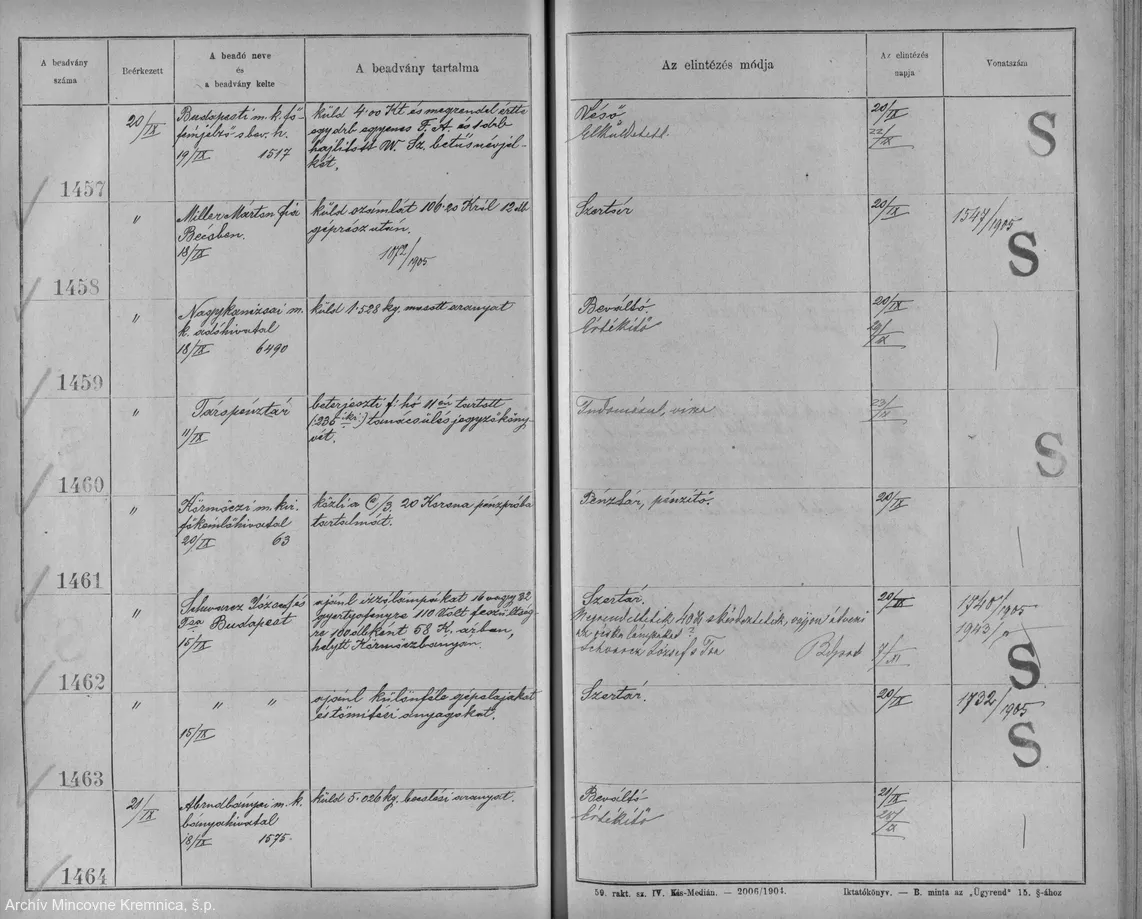 A beadvány száma
Beérkezett
A beadó neve és a beadvány kelte
A beadvány tartalma
Az elintézés módja
Az elintézés napja
Vonatszám
20/IX
Budapesti m. k. fő-
fémjelző s bev. h.
19/IX 1517
küld 4·00 Kt és megrendel értte
egy drb egyenes F. A. és 1 drb
hajlított W. Sz. betüs névjel-
két.
Véső
Elküldetett
20/IX
22/IX
S
1457
"
Miller Márton fia
Bécsben.
18/IX
küld számlát 106·20 Król 12 db
géprész után.
1072/1905
Szertár
20/IX
1547/1905
S
1458
"
Nagykanizsai m.
k. adóhivatal
18/IX 6490
küld 1·528 kg. mosott aranyat
Beváltó.
Értékítő
20/IX
29/IX
1459
"
Táropénztár
11/IX
beterjeszti f. hó 11 én tartott
tanácsülés jegyzőköny-
vét.
Tudomásul, vissza
23/IX
S
1460
"
Körmöczi m. kir.
főkémlőhivatal
20/IX 63
közli a C/3. 20 Korona pénzpróba
tartalmát.
Pénztár, pénzítő.
20/IX
1461
"
Schwarcz József és
Tsa Budapest
15/IX
ajánl izzólámpákat 16 vagy 32
gyertyafényre 110 Volt feszültség-
re 100 dbként 58 K. árben,
helytt Körmöczbányán.
Szertár.
Schwarcz József s Tsa
20/IX
7/XI
1740/1905
1943/
S
1462
"
" "
15/IX
ajánl különféle gépolajakat
és tömítési anyagokat.
Szertár.
20/IX
1732/1905
S
1463
21/IX
Abrudbányai m. k.
bányahivatal
18/IX 1575
küld 5·026 kg. becslési aranyat.
Beváltó
Értékítő
21/IX
1464
59. rakt. sz. IV. Kis-Medián. — 2006/1904.
Iktatókönyv. — B. minta az „Ügyrend" 15. §-ához
Archív Mincovne Kremnica, š.p.